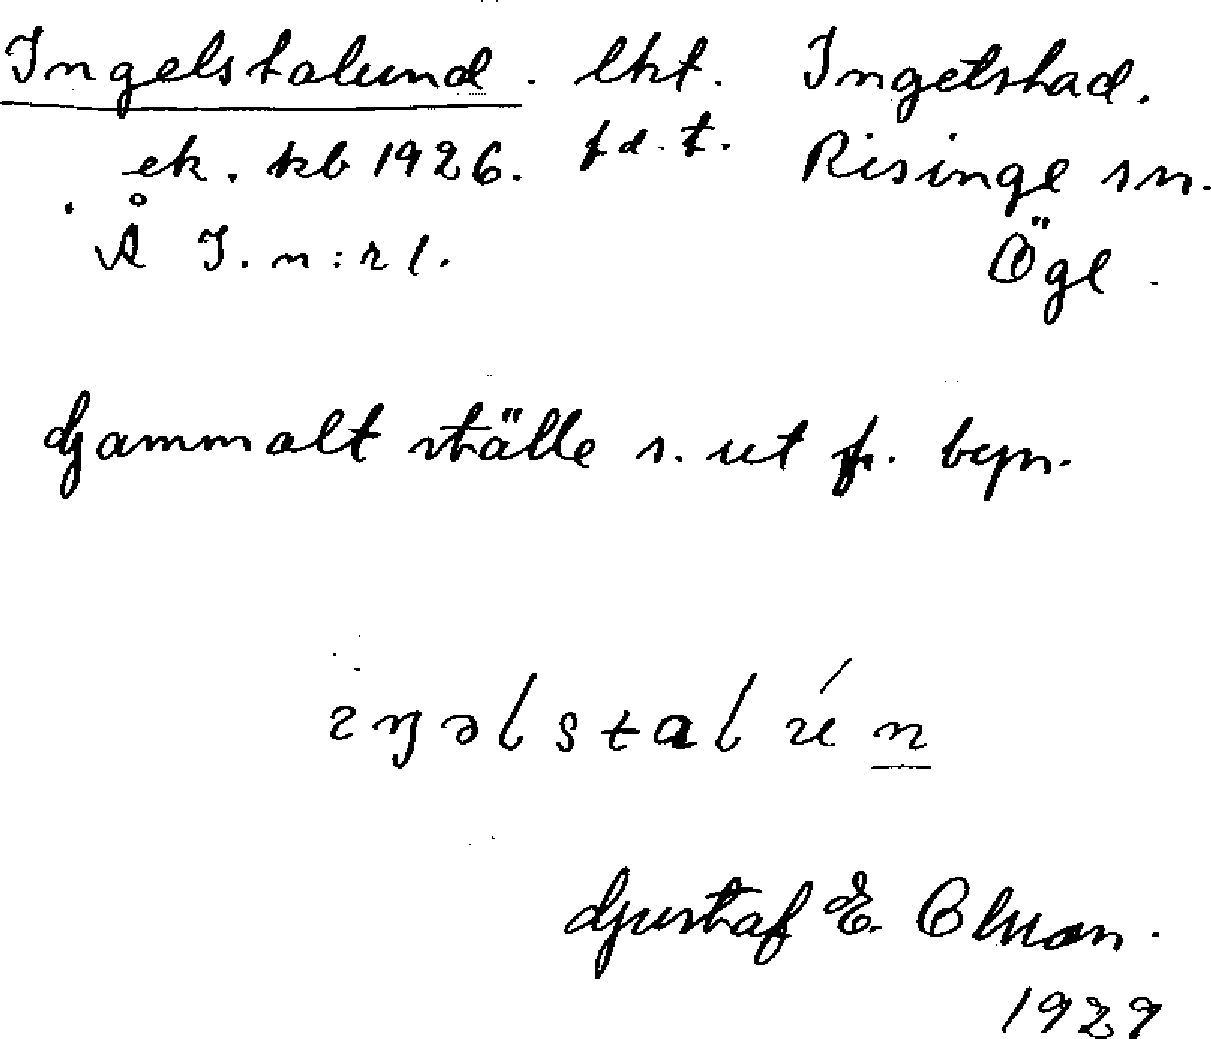 Ingelstalund. lht. Ingelstad.
ek. kb 1926. fd. t. Risinge sn.
Å I. n:r 1. Ögl.
Gammalt ställe s. ut fr. byn.
ıŋəlstalún
Gustaf E. Olsson.
1929